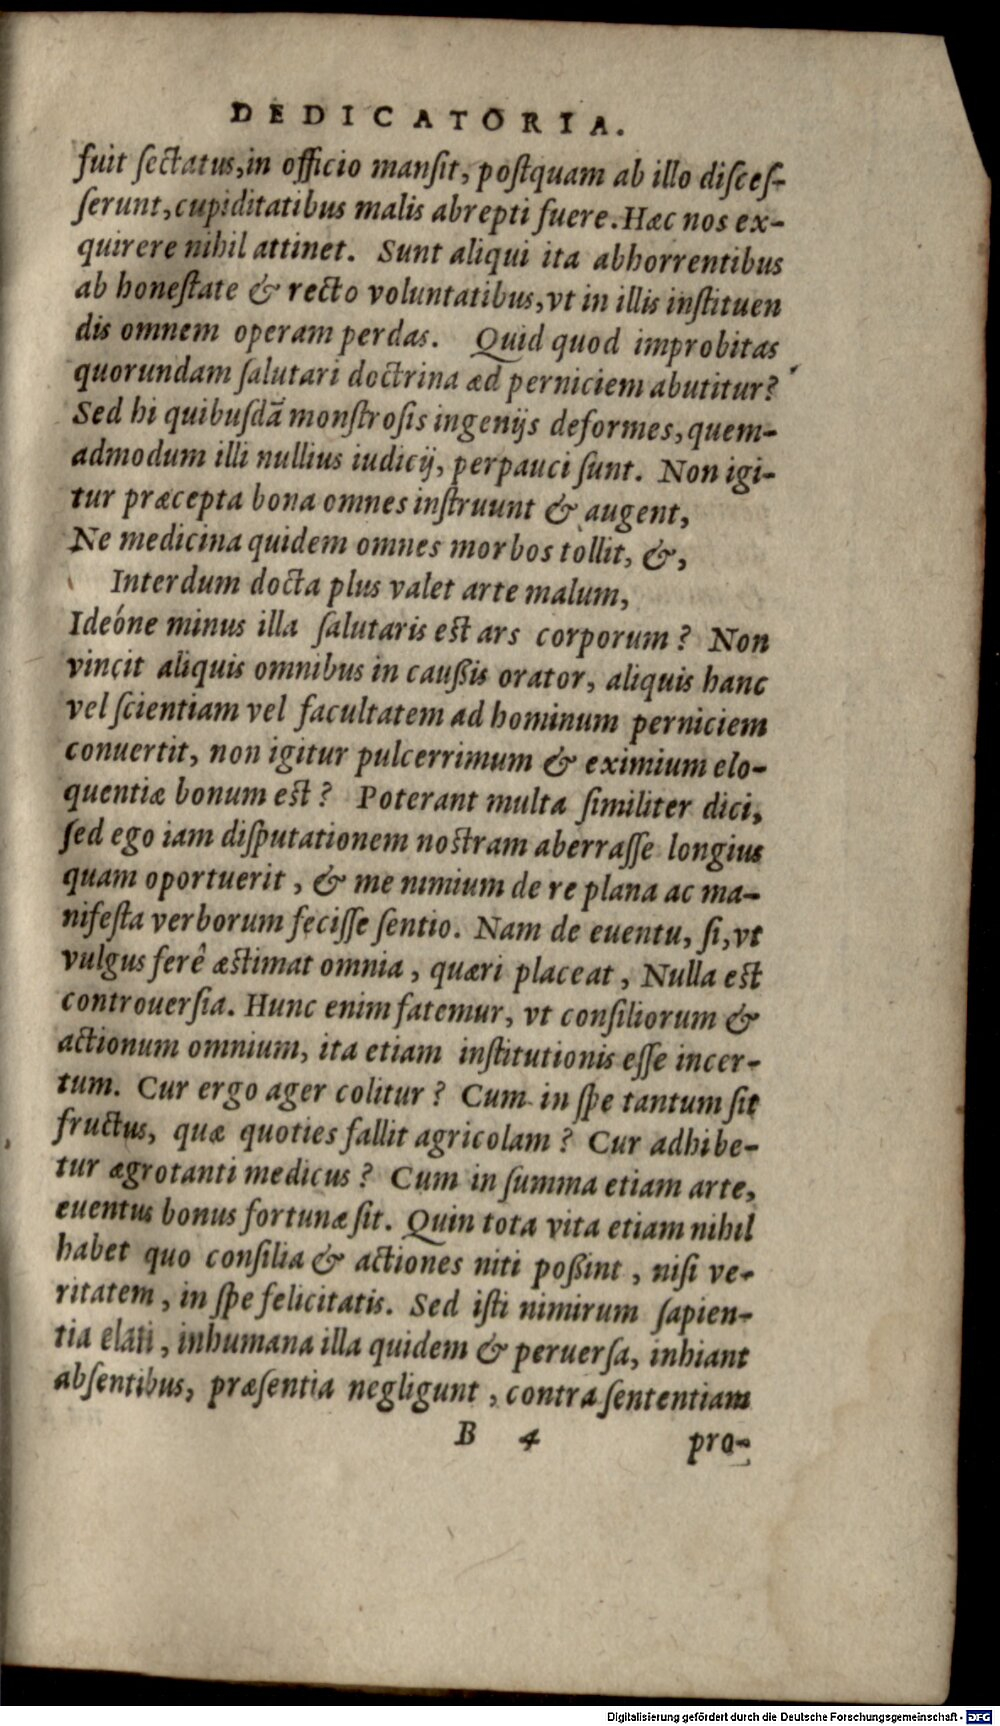 DEDICATORIA.
fuit ſectatus, in officio manſit, poſtquam ab illo diſceſ-
ſerunt, cupiditatibus malis abrepti fuere. Hæc nos ex-
quirere nihil attinet. Sunt aliqui ita abhorrentibus
ab honeſtate & recto voluntatibus, vt in illis inſtituen
dis omnem operam perdas. Quid quod improbitas
quorundam ſalutari doctrina æd perniciem abutitur?
Sed hi quibuſdã monſtroſis ingenijs deformes, quem-
admodum illi nullius iudicij, perpauci ſunt. Non igi-
tur præcepta bona omnes inſtruunt & augent,
Ne medicina quidem omnes morbos tollit, &,
Interdum docta plus valet arte malum,
Ideóne minus illa ſalutaris eſt ars corporum? Non
vincit aliquis omnibus in cauſſis orator, aliquis hanc
vel ſcientiam vel facultatem ad hominum perniciem
conuertit, non igitur pulcerrimum & eximium elo-
quentiæ bonum eſt? Poterant multa ſimiliter dici,
ſed ego iam diſputationem noſtram aberraſſe longius
quam oportuerit, & me nimium de re plana ac ma-
nifeſta verborum feciſſe ſentio. Nam de euentu, ſi, vt
vulgus ferê æſtimat omnia, quæri placeat, Nulla eſt
controuerſia. Hunc enim fatemur, vt conſiliorum &
actionum omnium, ita etiam inſtitutionis eſſe incer-
tum. Cur ergo ager colitur? Cum in ſpe tantum ſit
fructus, quæ quoties fallit agricolam? Cur adhibe-
tur ægrotanti medicus? Cum in ſumma etiam arte,
euentus bonus fortunæ ſit. Quin tota vita etiam nihil
habet quo conſilia & actiones niti poßint, niſi ve-
ritatem, in ſpe felicitatis. Sed iſti nimirum ſapien-
tia elati, inhumana illa quidem & peruerſa, inhiant
abſentibus, præſentia negligunt, contra ſententiam
B 4 pro-
Digitalisierung gefördert durch die Deutsche Forschungsgemeinschaft - DFG